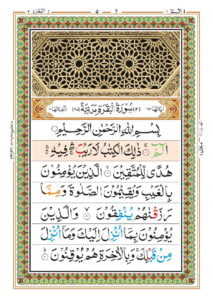 سُوْرَةُ الْبَقَرَةِ مَدَنِيَّةٌ
بِسْمِ اللّٰهِ الرَّحْمٰنِ الرَّحِيْمِ
الٓمّٓ ۚ ذٰلِكَ الْكِتٰبُ لَا رَيْبَ ۛ فِيْهِ ۛ
هُدًى لِّلْمُتَّقِيْنَ ۙ الَّذِيْنَ يُؤْمِنُوْنَ
بِالْغَيْبِ وَيُقِيْمُوْنَ الصَّلٰوةَ وَمِمَّا
رَزَقْنٰهُمْ يُنْفِقُوْنَ ۙ وَالَّذِيْنَ
يُؤْمِنُوْنَ بِمَآ اُنْزِلَ اِلَيْكَ وَمَآ اُنْزِلَ
مِنْ قَبْلِكَ ۚ وَبِالْاٰخِرَةِ هُمْ يُوْقِنُوْنَ ؕ